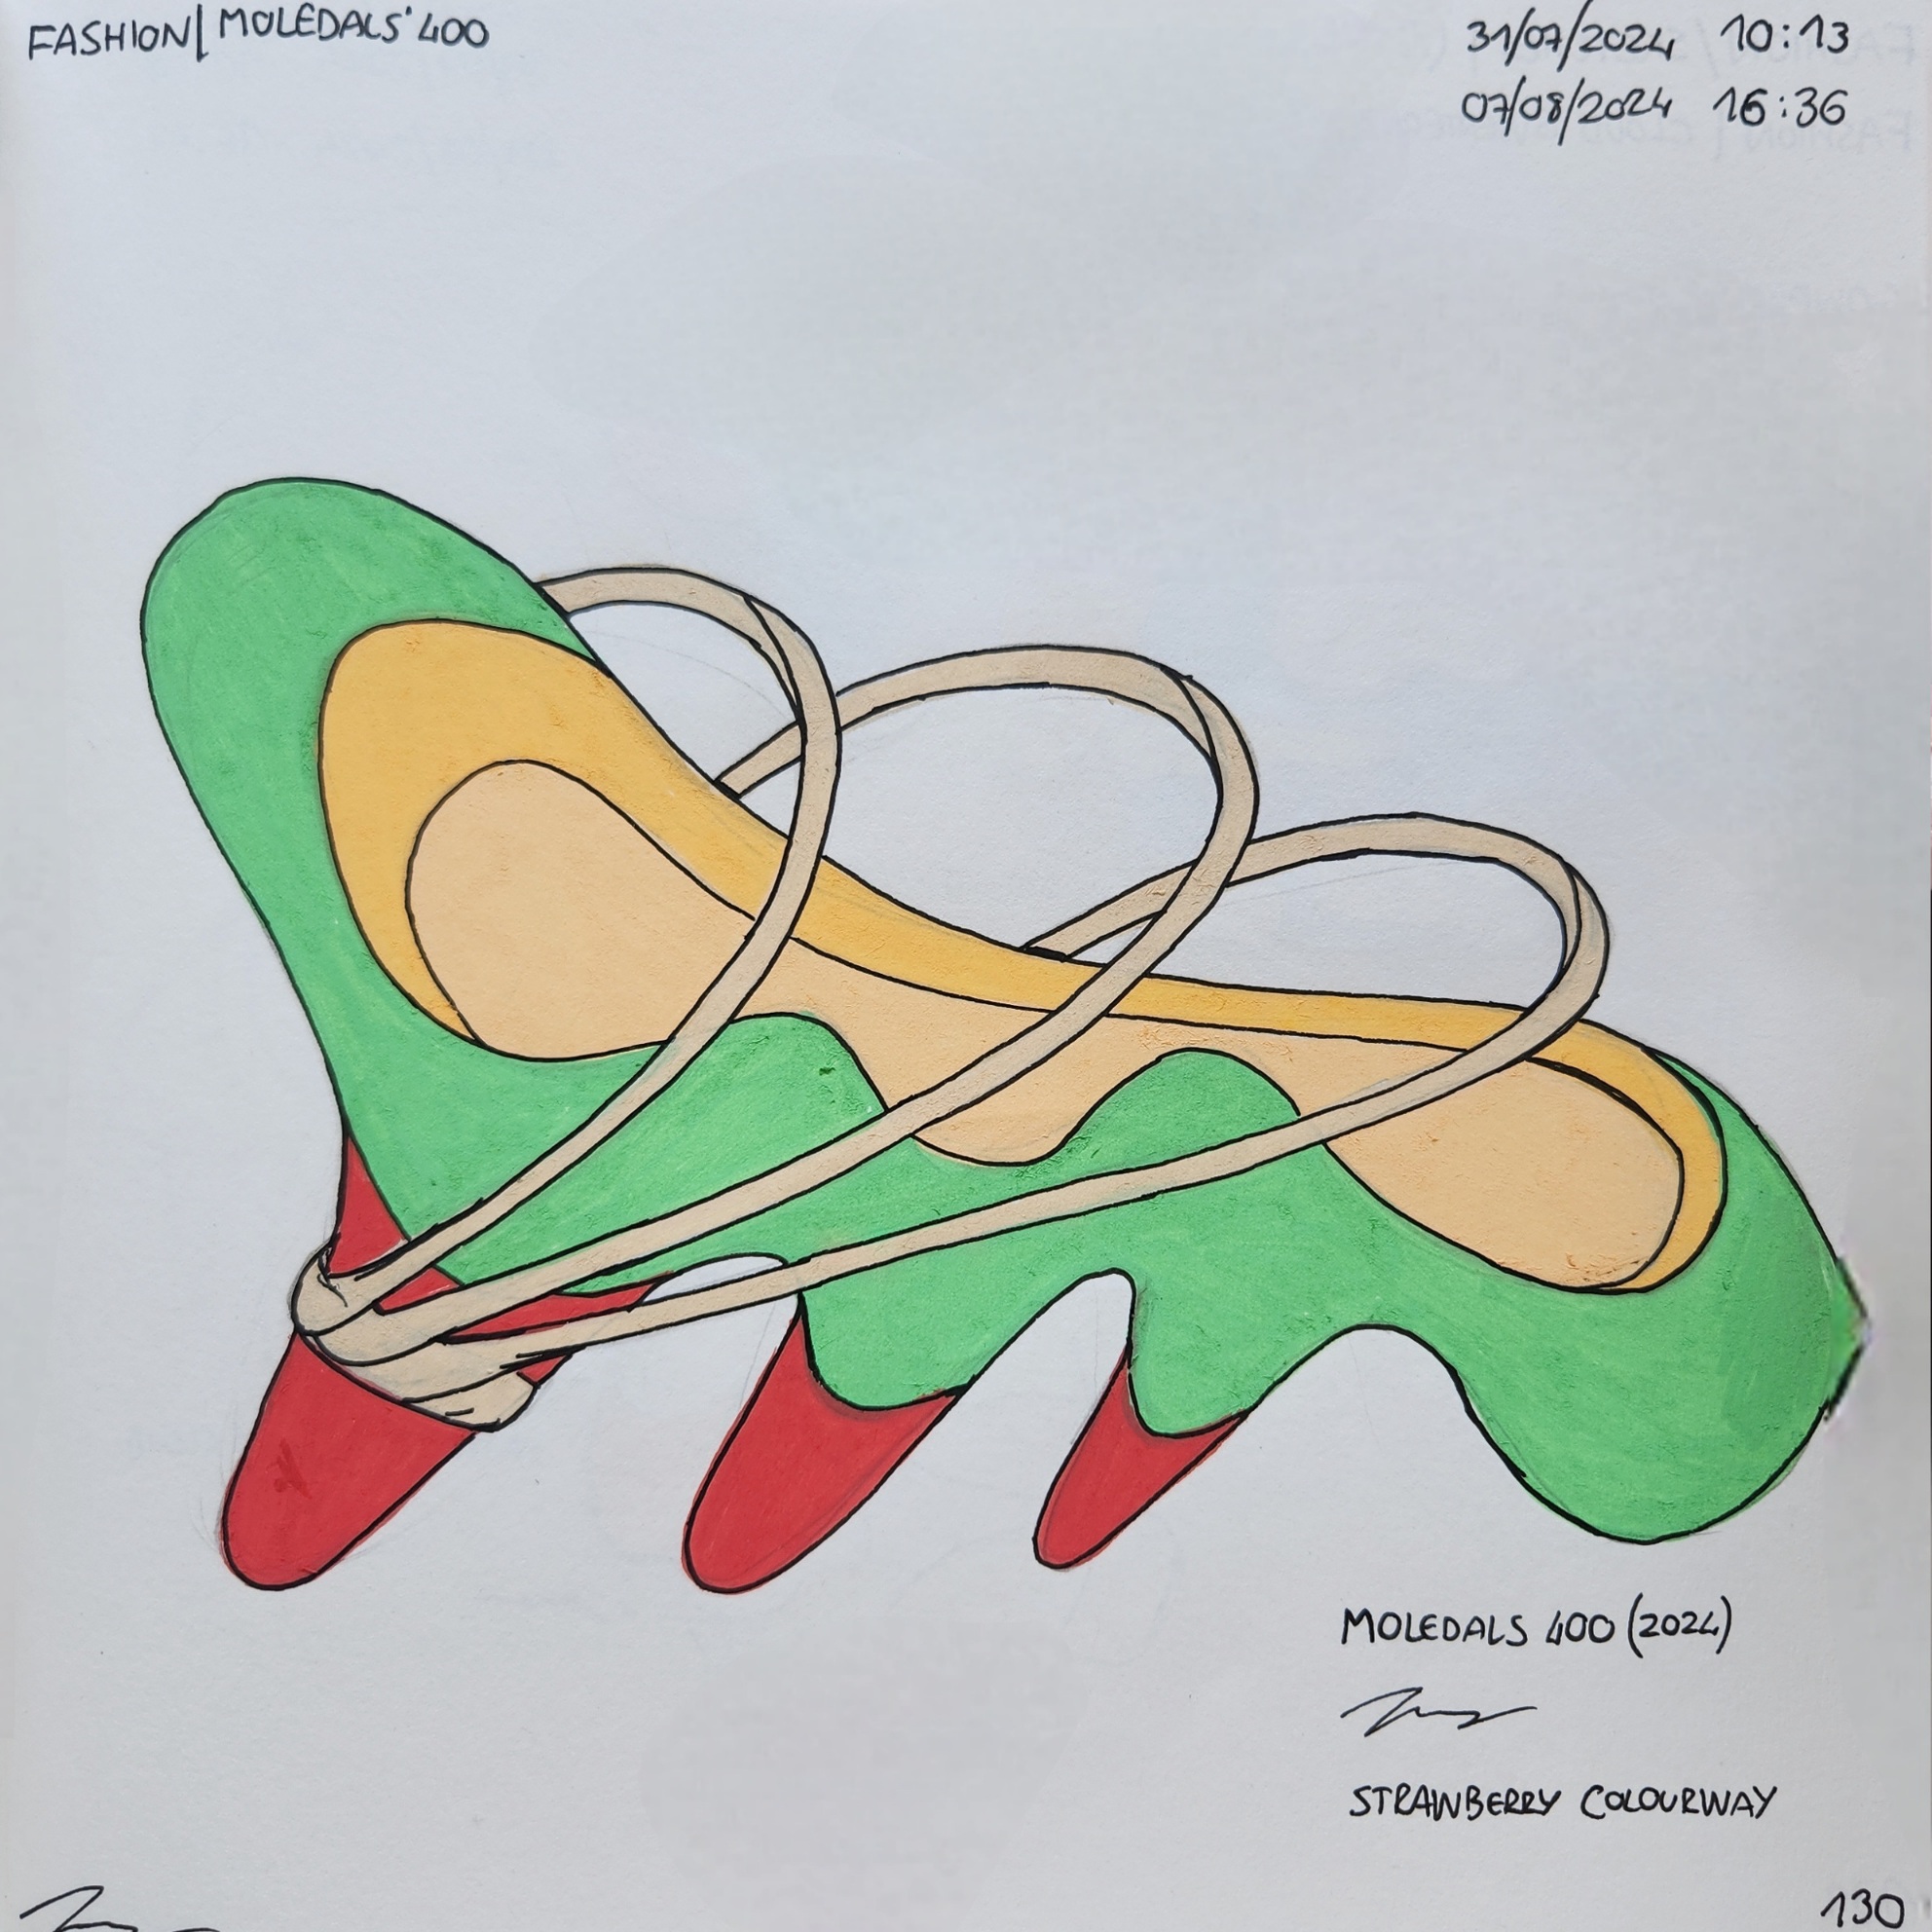 FASHION| MOLEDALS' 400
31/07/2024 10:13
07/08/2024 16:36
MOLEDALS 400 (2024)
STRAWBERRY COLOURWAY
130